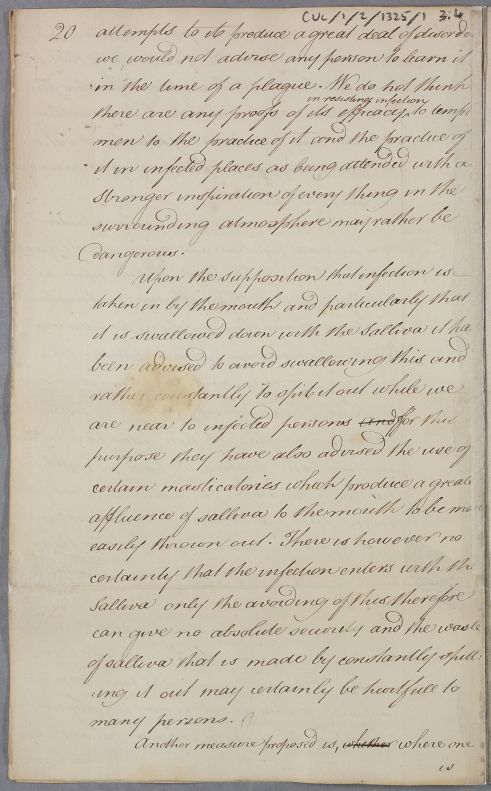 CUL/1/2/1325/1 3.4
20 attempts to it produce a great deal of disorder
we would not advise any person to learn it
in the time of a plague. We do not think
in resisting infection
there are any proofs of its efficacy to tempt
men to the practice of it and the practice of
it in infected places as being attended with a
stronger inspiration of every thing in the
surrounding atmosphere may rather be
dangerous.
Upon the supposition that infection is
taken in by the mouth and particularly that
it is swallowed down with the Salliva it has
been advised to avoid swallowing this and
rather constantly to spit it out while we
are near to infected persons and for this
purpose they have also advised the use of
certain masticatories which produce a greater
affluence of salliva to the mouth to be more
easily thrown out. There is however no
certainly that the infection enters with the
Salliva only the avoiding of this therefore
can give no absolute security and the waste
of salliva that is made by constantly spitt:
:ing it out may certainly be hurtfull to
many persons.
Another measure proposed is, whether where one
is